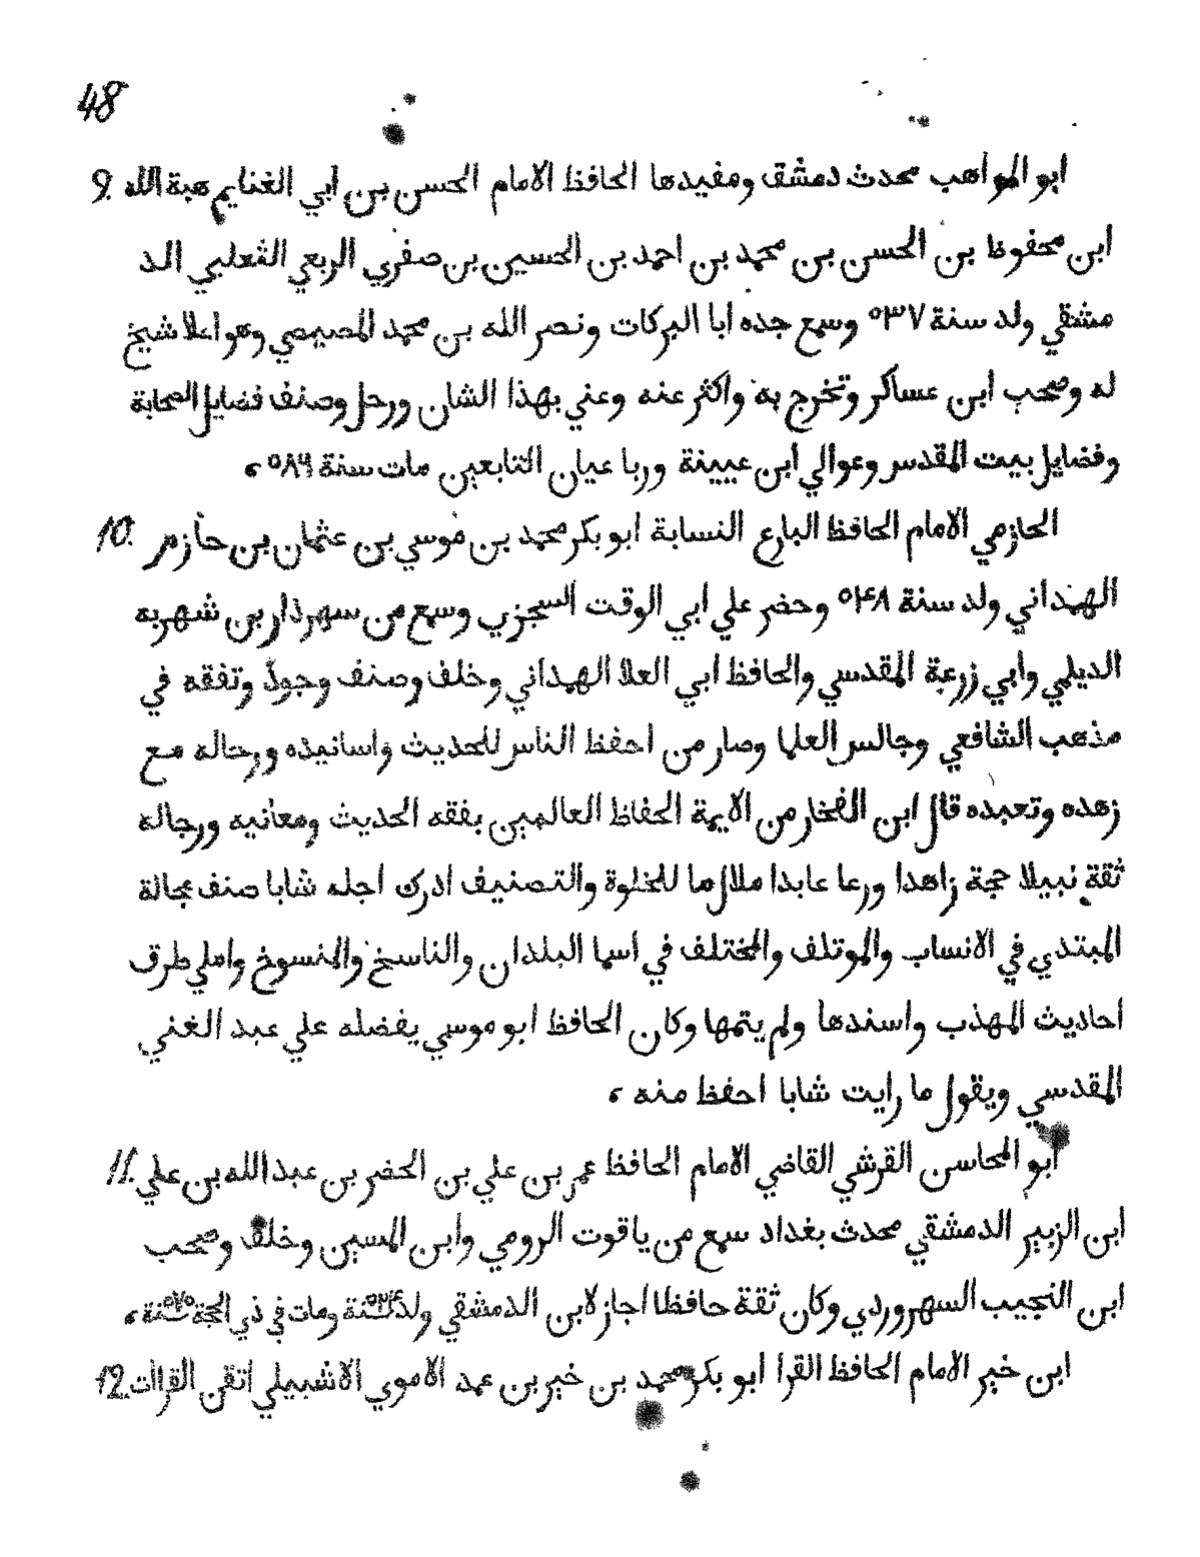 48
ابو المواهب محدث دمشق ومفيدها الحافظ الامام الحسن بن ابي الغنايم هبة الله 9.
ابن محفوظ بن الحسن بن محمد بن احمد بن الحسين بن صفري الربعي الثعلبي الد
مشقي ولد سنة ٥٣٧ وسمع جده ابا البركات ونصر الله بن محمد المصيصي وهو اعلا شيخ
له وصحب ابن عساكر وتخرج به واكثر عنه وعني بهذا الشان ورحل وصنف فضايل الصحابة
وفضايل بيت المقدس وعوالي ابن عيينة وربا عيان التابعين مات سنة ٥٨٦ ،
الحازمي الامام الحافظ البارع النسابة ابو بكر محمد بن موسي بن عثمان بن حازم 10.
الهمداني ولد سنة ٥۴٨ وحضر علي ابي الوقت السجزي وسمع من سهردار بن شهريه
الديلمي وابي زرعة المقدسي والحافظ ابي العلا الهمداني وخلف وصنف وجودّ وتفقه في
مذهب الشافعي وجالس العلما وصار من احفظ الناس للحديث واسانيده ورحاله مع
زهده وتعبده قال ابن الفخار من الايمة الحفاظ العالمين بفقه الحديث ومعانيه ورجاله
ثقة نبيلا حجة زاهدا ورعا عابدا ملال ما للخلوة والتصنيف ادرك اجله شابا صنف عجالة
المبتدي في الانساب والموتلف والمختلف في اسما البلدان والناسخ والمنسوخ واملي طرف
احاديث المهذب واسندها ولم يتمها وكان الحافظ ابو موسي يفضله علي عبد الغني
المقدسي ويقول ما رايت شابا احفظ منه ،
ابو المحاسن القرشي القاضي الامام الحافظ عمر بن علي بن الحضر بن عبد الله بن علي 11.
ابن الزبير الدمشقي محدث بغداد سمع من ياقوت الرومي وابن المسين وخلف وصحب
ابن النجيب السهروردي وكان ثقة حافظا اجاز لابن الدمشقي ولد سنة ومات في ذي الحجة سنة ٥٧٥ ،
ابن خير الامام الحافظ القرا ابو بكر محمد بن خير بن عمد الاموي الاشبيلي اتقن القرات 12.